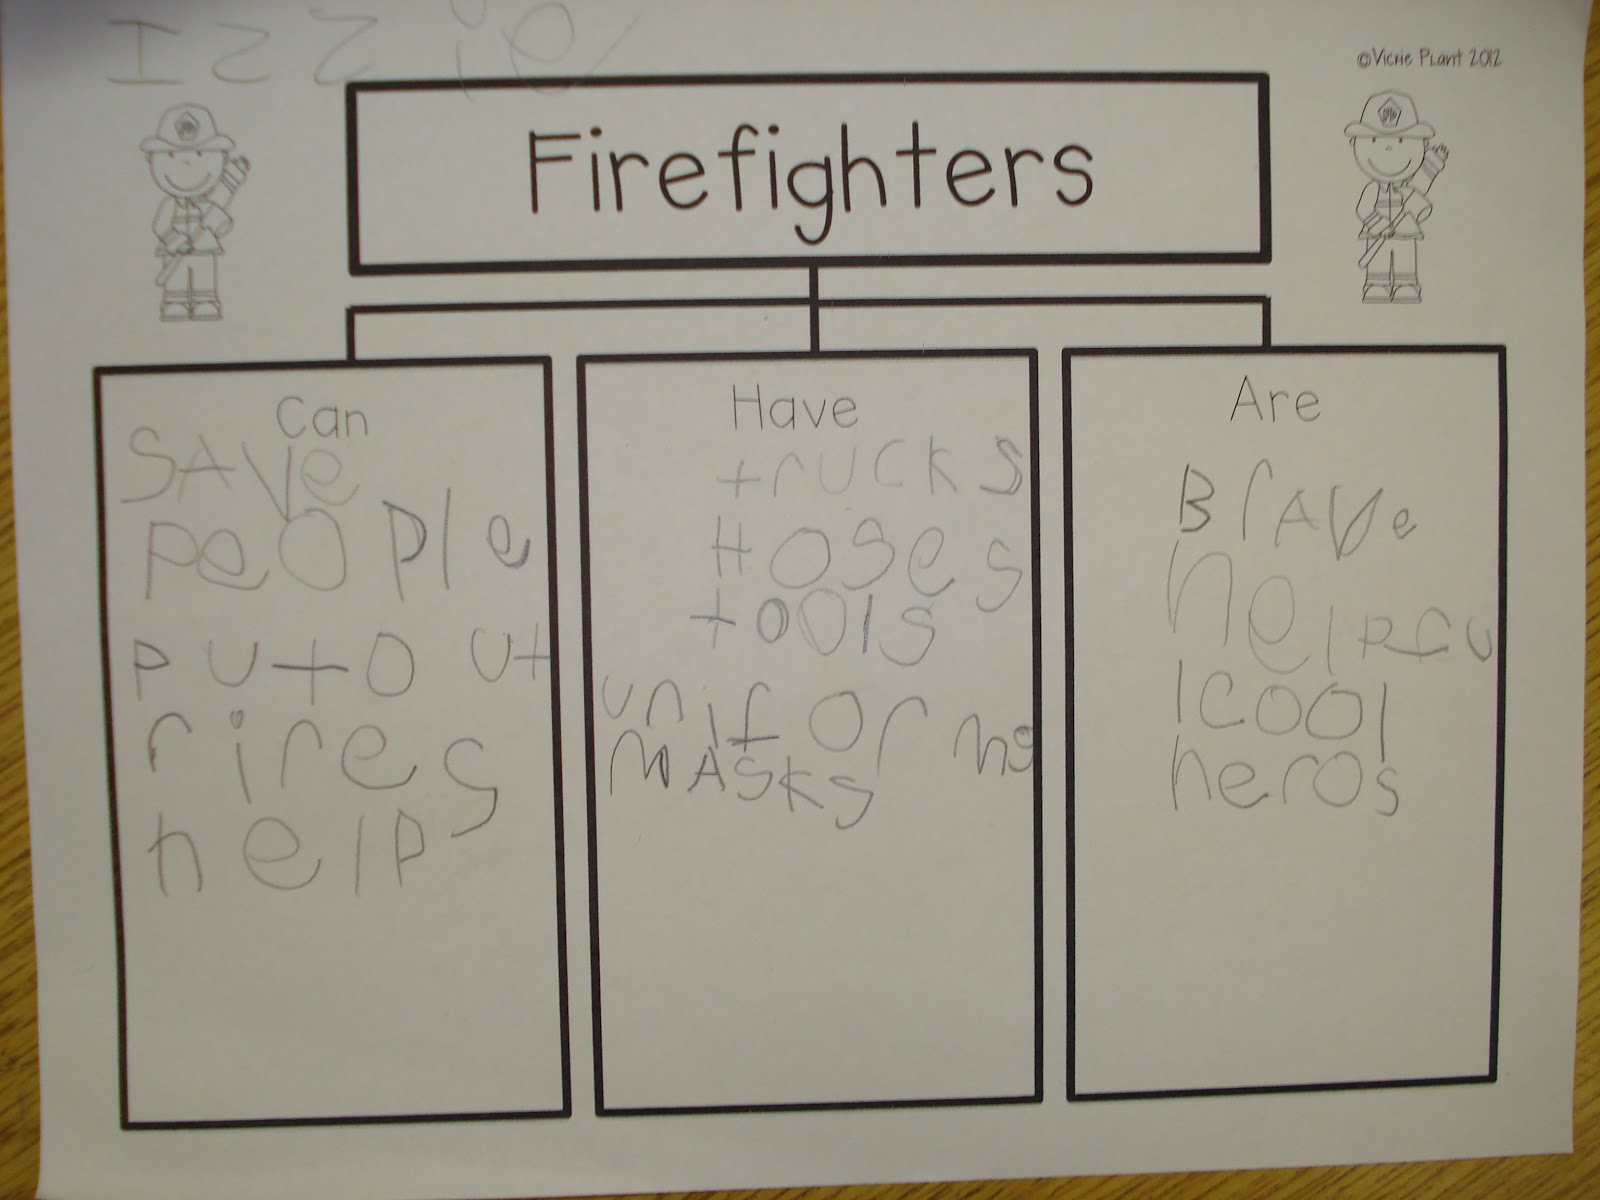 Izzie
©Vickie Plant 2012
Firefighters
Can
SAVe
people
put out
rires
help
Have
trucks
Hoses
tools
uniforms
MASKS
Are
BrAVe
helpfu
lcool
heros